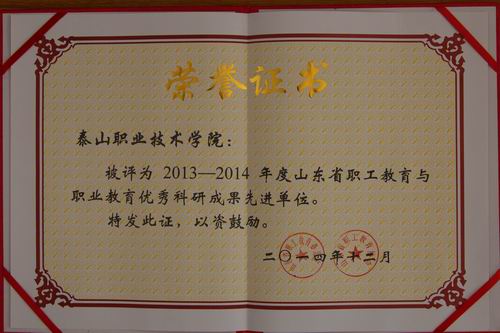 荣誉证书
泰山职业技术学院：
被评为 2013—2014 年度山东省职工教育与
职业教育优秀科研成果先进单位。
特发此证，以资鼓励。
二〇一四年十二月